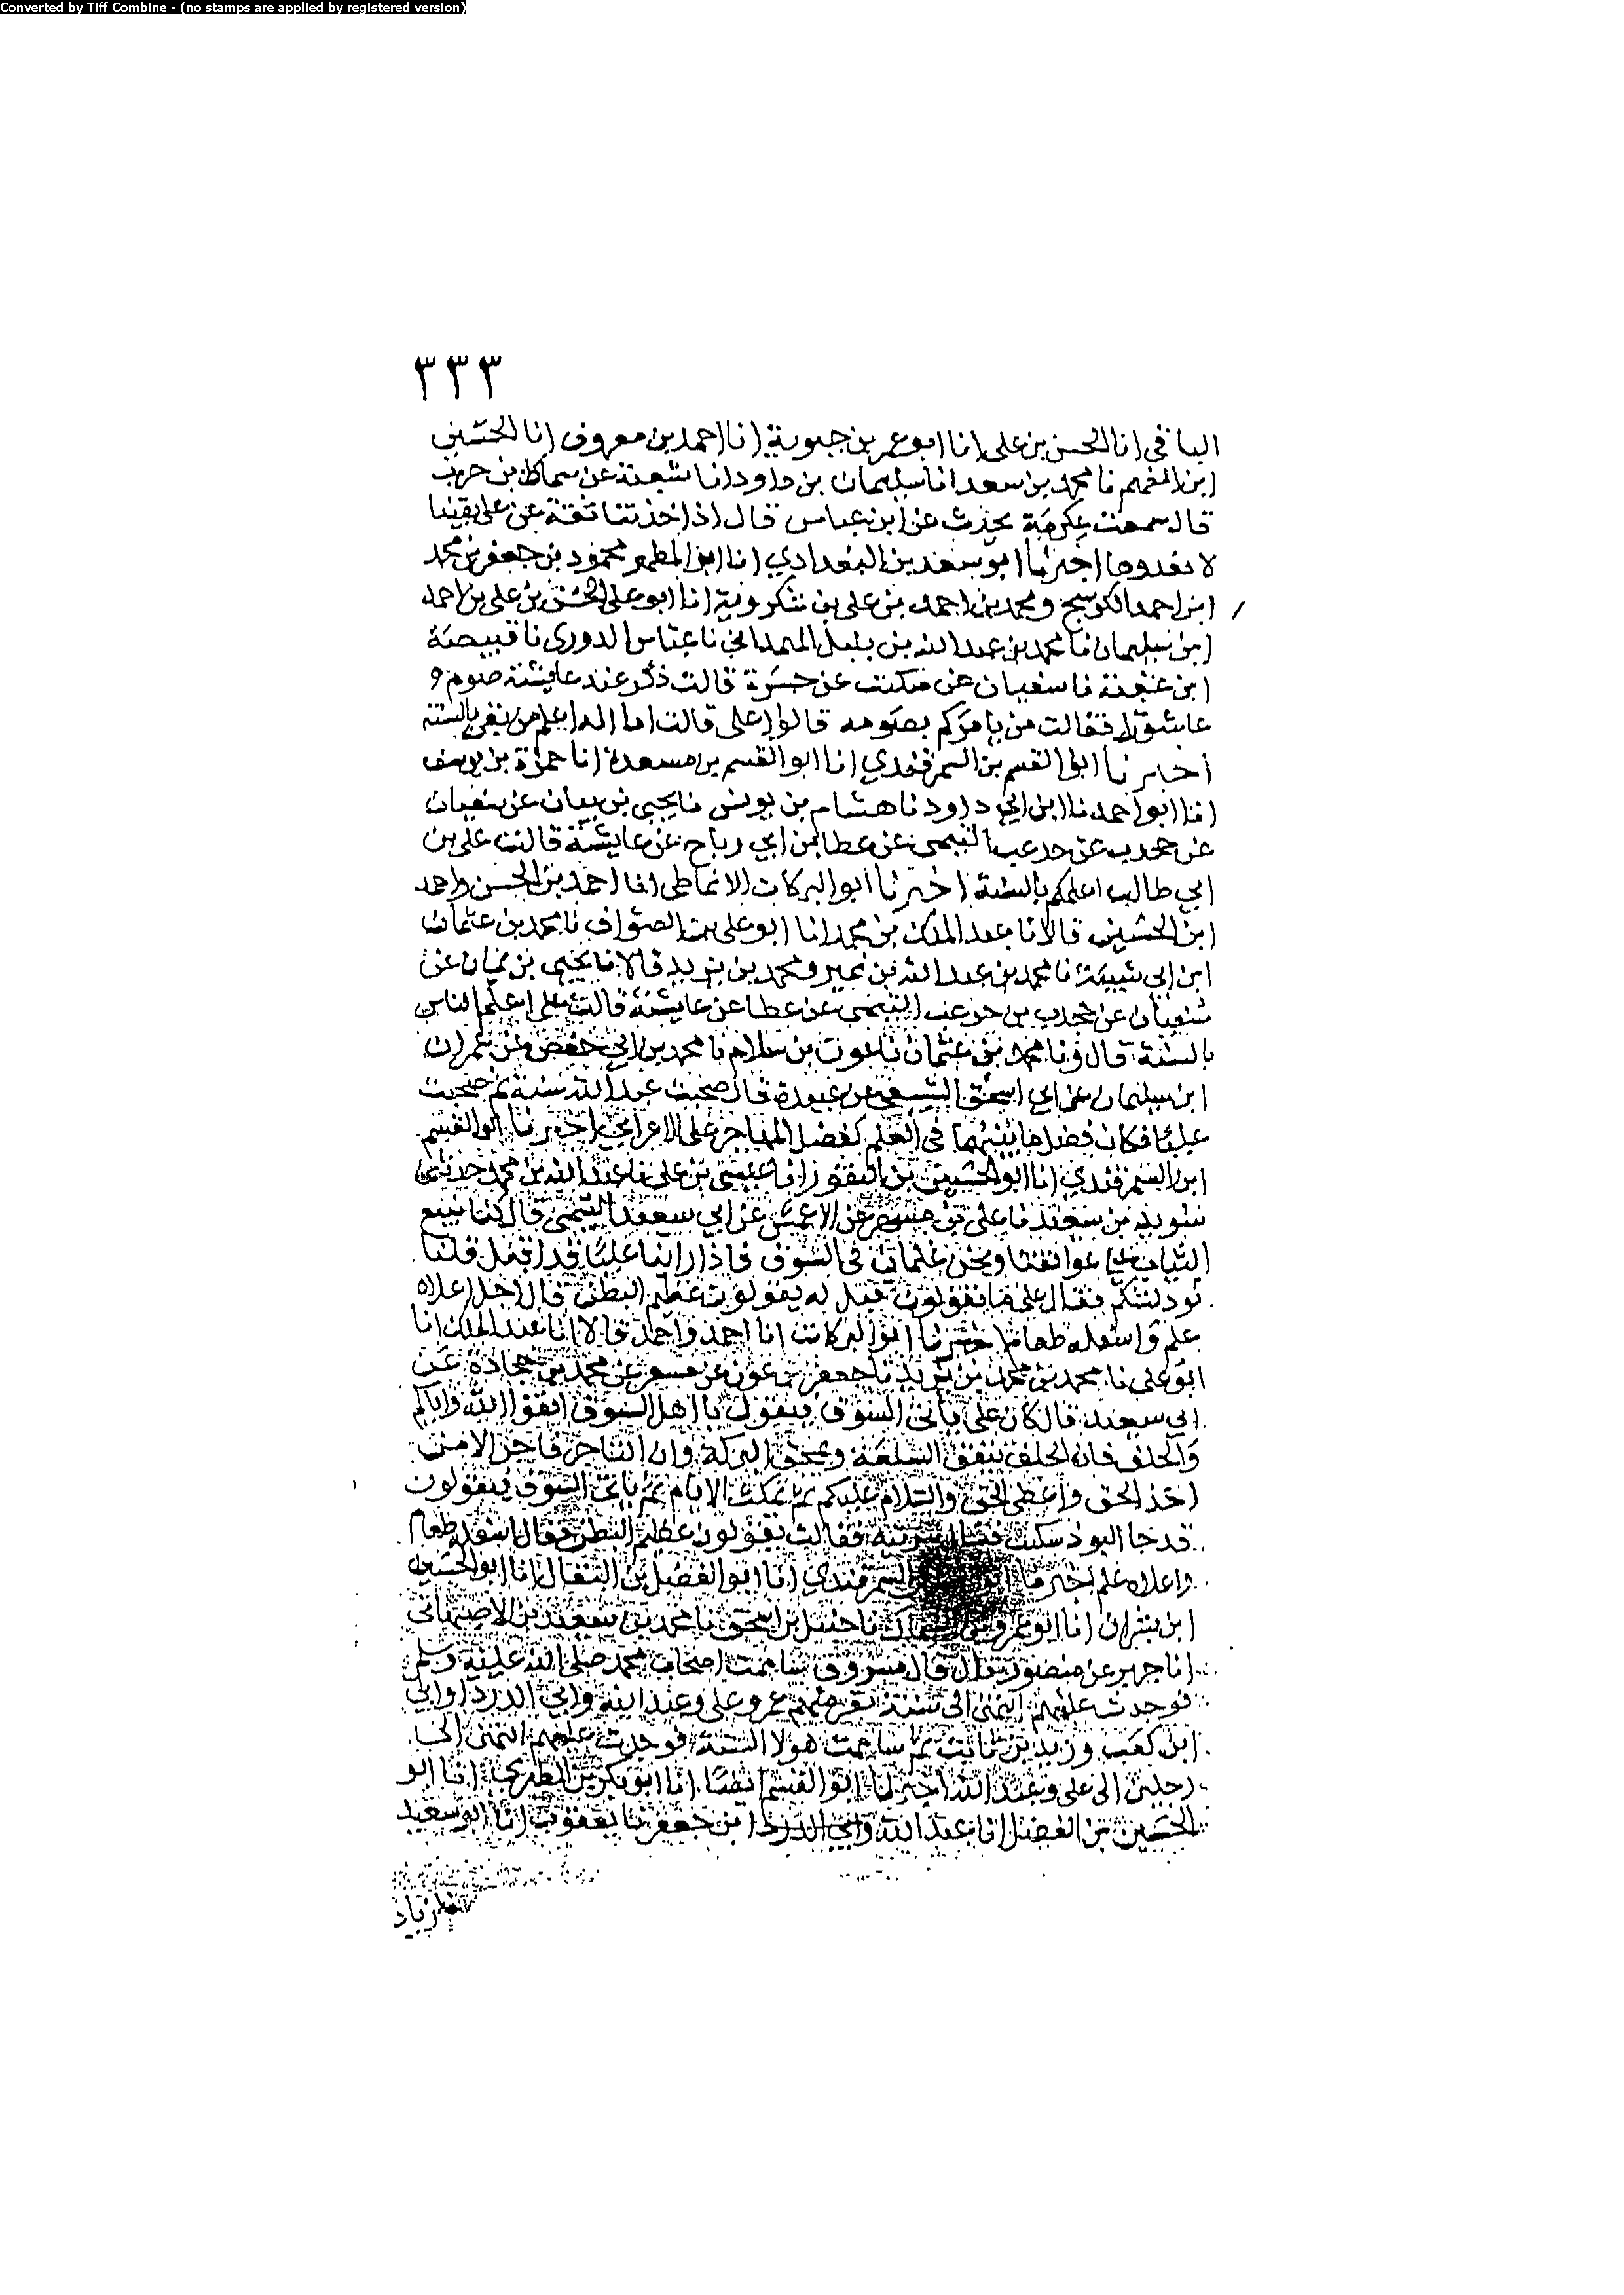 Converted by Tiff Combine - (no stamps are applied by registered version)
٣٣٣
الباقي انا الحسن بن علي انا ابو عمر بن حيوية انا احمد بن معروف انا الحسين
ابن الفهم نا محمد بن سعد انا سليمان بن داود انا شعبة عن سماك بن حرب
قال سمعت عكرمة يحدث عن ابن عباس قال اذا حدثنا ثقة عن علي بفتيا
لا نعدوها اخبرنا ابو سعد بن البغدادي انا ابو المطهر محمود بن جعفر بن محمد
ابن احمد الكوسج ومحمد بن احمد بن علي بن شكروية انا ابو علي الحسن بن علي بن احمد
ابن سليمان نا محمد بن عبد الله بن بلبل الهمداني نا عباس الدوري نا قبيصة
ابن عقبة نا سفيان عن جسرة قالت ذكر عند عايشة صوم
عاشورا فقالت من يامركم بصومه قالوا علي قالت اما انه اعلم من بقي بالسنة
اخبرنا ابو القسم بن السمرقندي انا ابو القسم بن مسعدة انا حمزة بن يوسف
انا ابو احمد نا ابن ابي داود نا هشام بن يونس نا يحيى بن يمان عن سفيان
عن جحدب عن التيمي عن عطا بن ابي رباح عن عايشة قالت علي بن
ابي طالب اعلمكم بالسنة اخبرنا ابو البركات الانماطي انا احمد بن الحسن واحمد
ابن الحسين قالا انا عبد الملك بن محمد انا ابو علي بن الصواف نا محمد بن عثمان
ابن ابي شيبة نا محمد بن عبد الله بن نمير ومحمد بن يزيد قالا نا يحيى بن يمان عن
سفيان عن جحدب بن جرعب التيمي عن عطا عن عايشة قالت علي اعلم الناس
بالسنة قال ونا محمد بن عثمان نا عون بن سلام نا محمد بن ابي حفص عن عمران
ابن سليمان عن ابي اسحق السبيعي عن عبيدة قال صحبت عبد الله سنة ثم صحبت
عليا فكان فضل ما بينهما في العلم كفضل المهاجر على الاعرابي اخبرنا ابو القسم
ابن السمرقندي انا ابو الحسين بن النقور انا عيسى بن علي نا عبد الله بن محمد حدثني
سويد بن سعيد نا علي بن مسهر عن الاعمش عن ابي سعيد التيمي قال كنا نبيع
الثياب على عواتقنا ونحن غلمان في السوق فاذا راينا عليا قد اقبل قلنا
فقال علي ما تقولون قيل له يقولون عظيم البطن قال اجل اعلاه
علم واسفله طعام اخبرنا ابو البركات انا احمد واحمد قالا انا عبد الملك انا
ابو علي نا محمد نا محمد بن يزيد نا جعفر بن عون عن مسعر عن محمد بن جحادة عن
ابي سعيد قال كان علي ياتي السوق فيقول يا اهل السوق اتقوا الله واياكم
والحلف فان الحلف ينفق السلعة ويمحق البركة وان التاجر فاجر الا من
اخذ الحق واعطى الحق والسلام عليكم ثم يمكث الايام ثم ياتي السوق فيقولون
قد جا فقالت يقولون عظيم البطن فقال اسفله طعام
واعلاه علم اخبرنا السمرقندي انا ابو الفضل بن البقال انا ابو الحسين
ابن بشران انا ابو عمرو بن السماك نا حنبل بن اسحق نا محمد بن سعيد بن الاصبهاني
انا جرير عن منصور قال قال مسروق شاممت اصحاب محمد صلى الله عليه وسلم
فوجدت علمهم انتهى الى ستة نفر منهم عمر وعلي وعبد الله وابي الدردا وابي
ابن كعب وزيد بن ثابت ثم شاممت هولا الستة فوجدت علمهم انتهى الى
رجلين الى علي وعبد الله اخبرنا ابو القسم ايضا انا ابو بكر بن الطبري انا ابو
الحسين بن الفضل انا عبد الله وابي الدردا بن جعفر نا يعقوب انا ابو سعيد